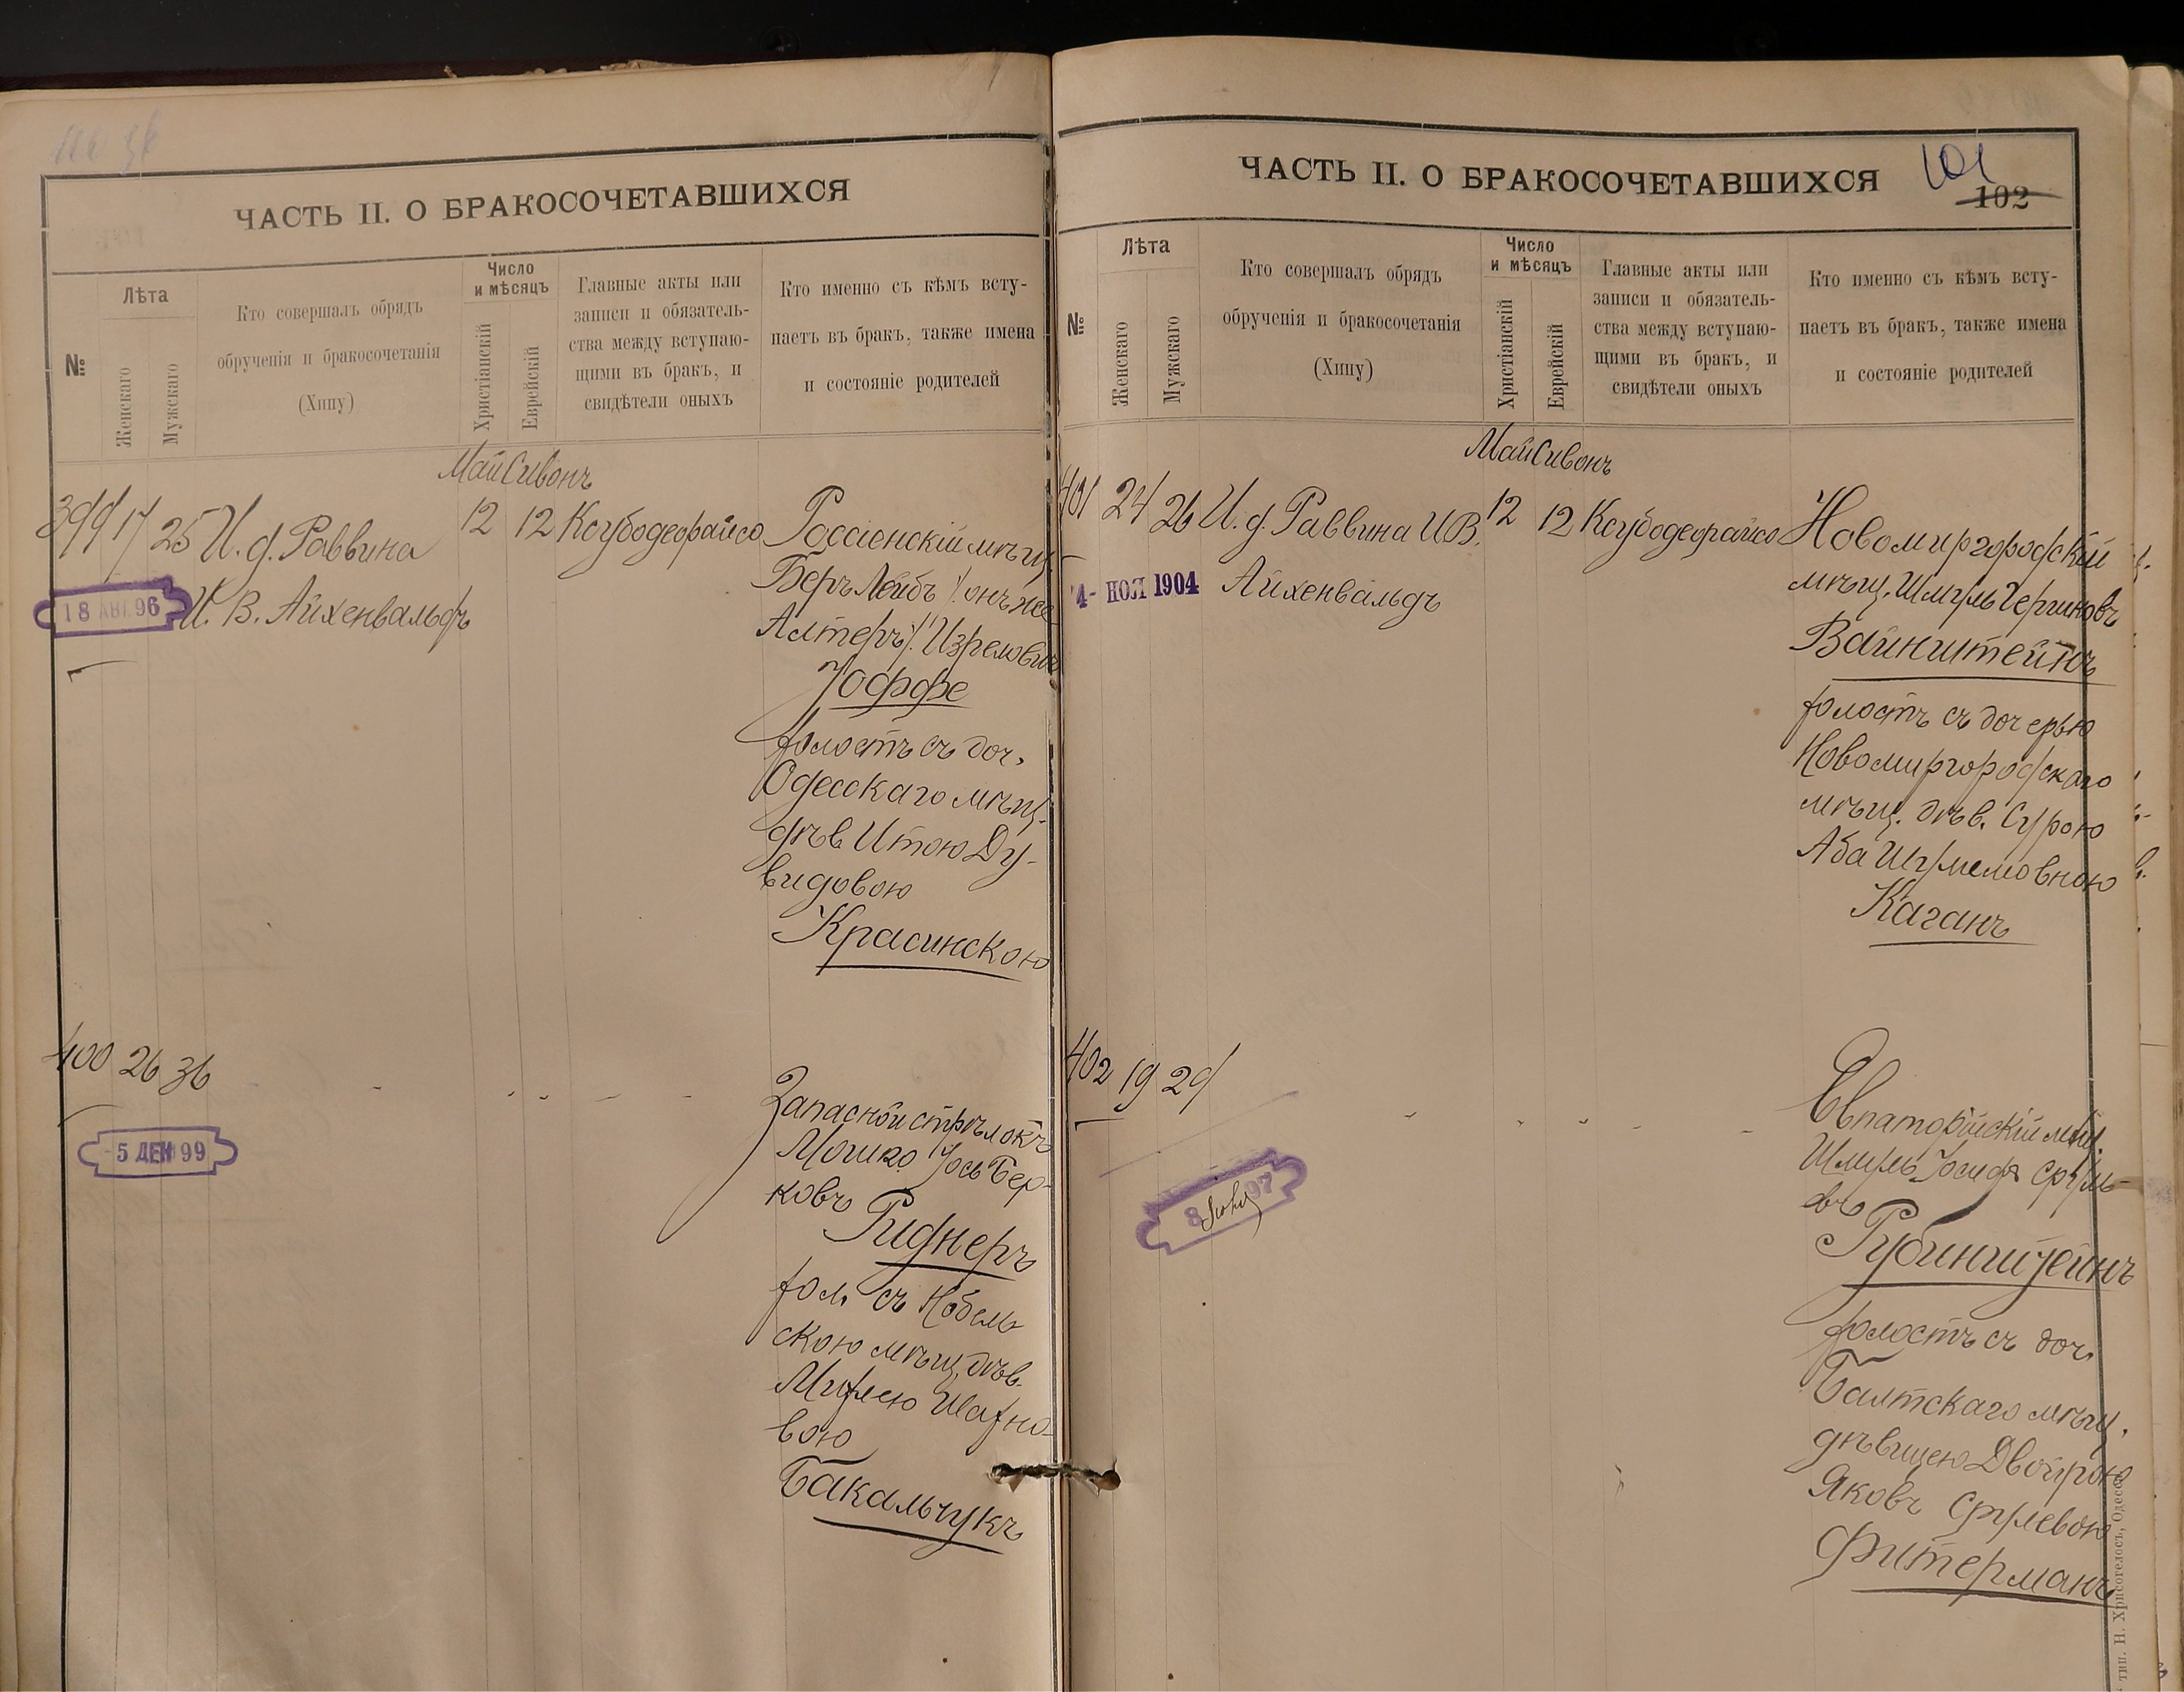 ЧАСТЬ II. О БРАКОСОЧЕТАВШИХСЯ
№
Лѣта
Женскаго
Мужскаго
Кто совершалъ обрядъ
обрученія и бракосочетанія
(Хипу)
Число
и мѣсяцъ
Христіанскій
Еврейскій
Главные акты или
записи и обязатель-
ства между вступаю-
щими въ бракъ, и
свидѣтели оныхъ
Кто именно съ кѣмъ всту-
паетъ въ бракъ, также имена
и состояніе родителей
Май Сивонъ
399 17 25 И. д. Раввина 12 12 Ксубодеорайсо
И. В. Айхенвальдъ
18 АВГ. 96
Россіенскій мѣщ.
Беръ Лейбъ /: онъ же
Алтеръ :/ Изрелович
Іоффе
холостъ съ доч.
Одесскаго мѣщ.
дѣв. Итою Ду-
видовою
Красинскою
400 26 36 - - - - -
-5 ДЕК 99
Запасной стрѣлокъ
Мошко Іось Бер-
ковъ
Риднеръ
хол. съ Кобель
скою мѣщ. дѣв.
Шахно-
вою
Бакальчукъ
ЧАСТЬ II. О БРАКОСОЧЕТАВШИХСЯ
101
102
№
Лѣта
Женскаго
Мужскаго
Кто совершалъ обрядъ
обрученія и бракосочетанія
(Хипу)
Число
и мѣсяцъ
Христіанскій
Еврейскій
Главные акты или
записи и обязатель-
ства между вступаю-
щими въ бракъ, и
свидѣтели оныхъ
Кто именно съ кѣмъ всту-
паетъ въ бракъ, также имена
и состояніе родителей
Май Сивонъ
401 24 26 И. д. Раввина И. В. 12 12 Ксубодеорайсо
Айхенвальдъ
4- НОЯ 1904
Новомиргородскій
мѣщ. Шмуль Гершковъ
Вайнштейнъ
холостъ съ дочерью
Новомиргородскаго
мѣщ. дѣв. Сурою
Аба Шмулевною
Каганъ
402 19 29 - - - - -
8 97
Евпаторійскій мѣщ.
Шмуль Іосифъ Сруль-
евъ
Рубинштейнъ
холостъ съ доч.
Балтскаго мѣщ.
дѣвицею Двойрою
Яковъ Срулевою
Фитерманъ
тип. Н. Хрисогелосъ, Одесса